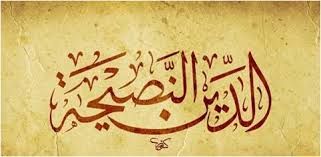 الدِّينُ النَّصِيحَة